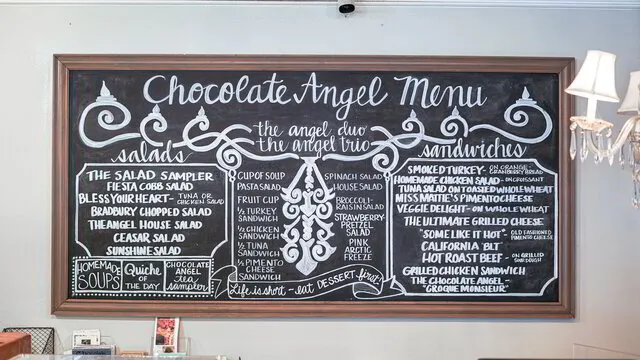 Chocolate Angel Menu
salads
THE SALAD SAMPLER
FIESTA COBB SALAD
BLESS YOUR HEART - TUNA OR CHICKEN SALAD
BRADBURY CHOPPED SALAD
THE ANGEL HOUSE SALAD
CEASAR SALAD
SUNSHINE SALAD
HOMEMADE SOUPS
Quiche OF THE DAY
CHOCOLATE ANGEL tea sampler
the angel duo
the angel trio
CUP OF SOUP
PASTA SALAD
FRUIT CUP
1/2 TURKEY SANDWICH
1/2 CHICKEN SANDWICH
1/2 TUNA SANDWICH
1/2 PIMENTO CHEESE SANDWICH
SPINACH SALAD
HOUSE SALAD
BROCCOLI-RAISIN SALAD
STRAWBERRY-PRETZEL SALAD
PINK ARCTIC FREEZE
Life is short - eat DESSERT first!
sandwiches
SMOKED TURKEY - ON ORANGE-CRANBERRY BREAD
HOMEMADE CHICKEN SALAD - ON CROISSANT
TUNA SALAD ON TOASTED WHOLE WHEAT
MISS MATTIE'S PIMENTO CHEESE
VEGGIE DELIGHT - ON WHOLE WHEAT
THE ULTIMATE GRILLED CHEESE
"SOME LIKE IT HOT" - OLD FASHIONED PIMENTO CHEESE
CALIFORNIA 'BLT'
HOT ROAST BEEF - ON GRILLED SOURDOUGH
GRILLED CHICKEN SANDWICH
THE CHOCOLATE ANGEL -
"CROQUE MONSIEUR"